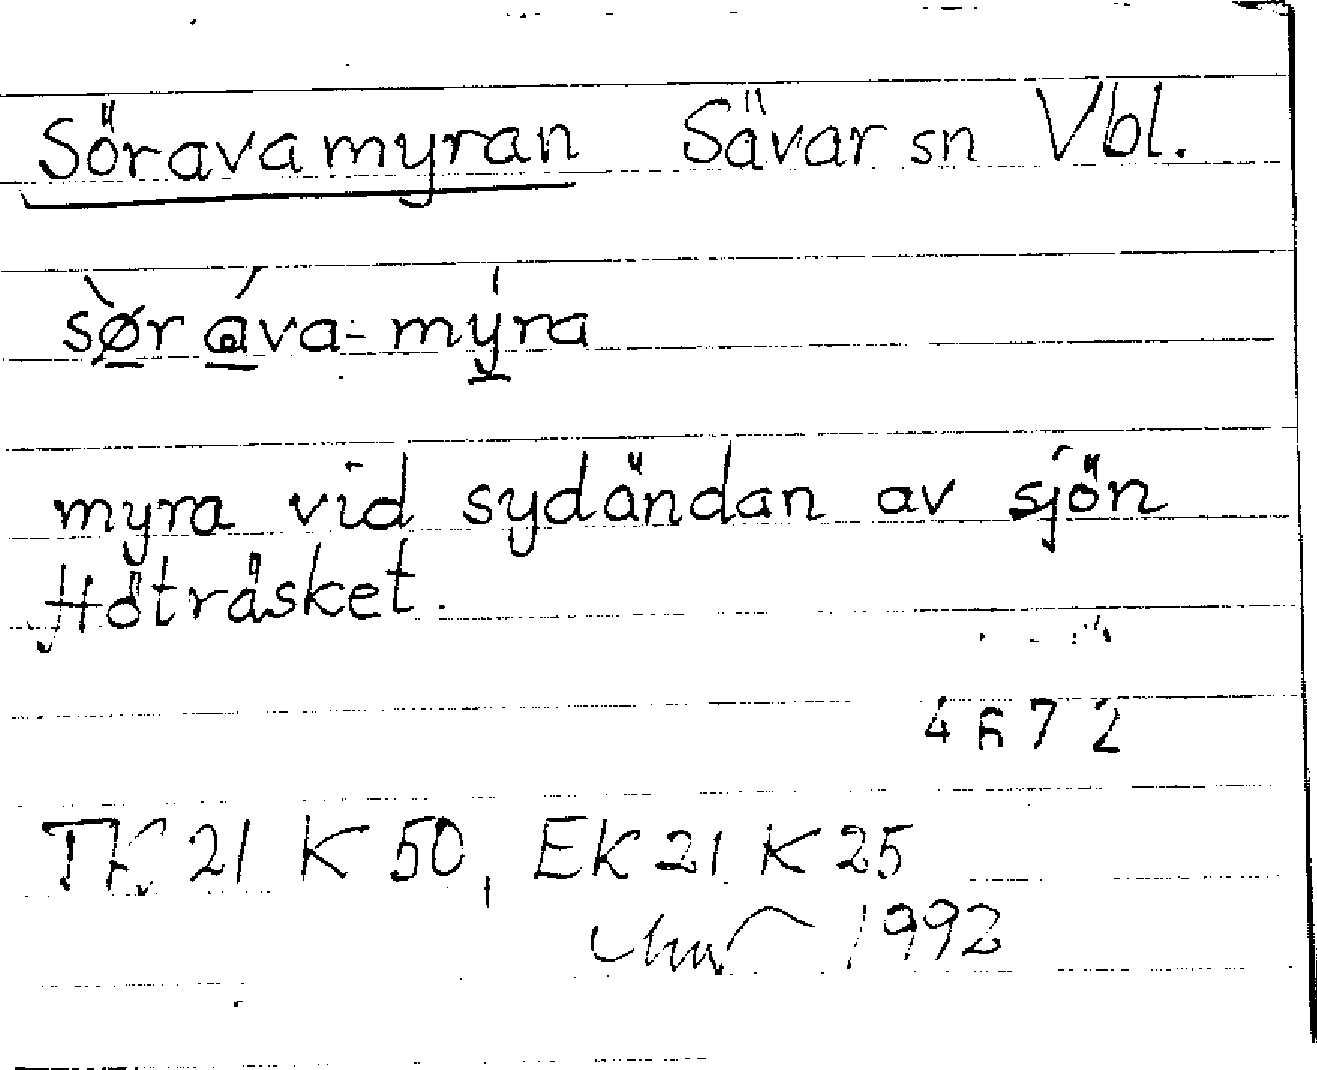 Söravamyran Sävar sn Vbl.
sørava-myra
myra vid sydändan av sjön
Höträsket.
4672
TK 21 K 50, EK 21 K 25
1992